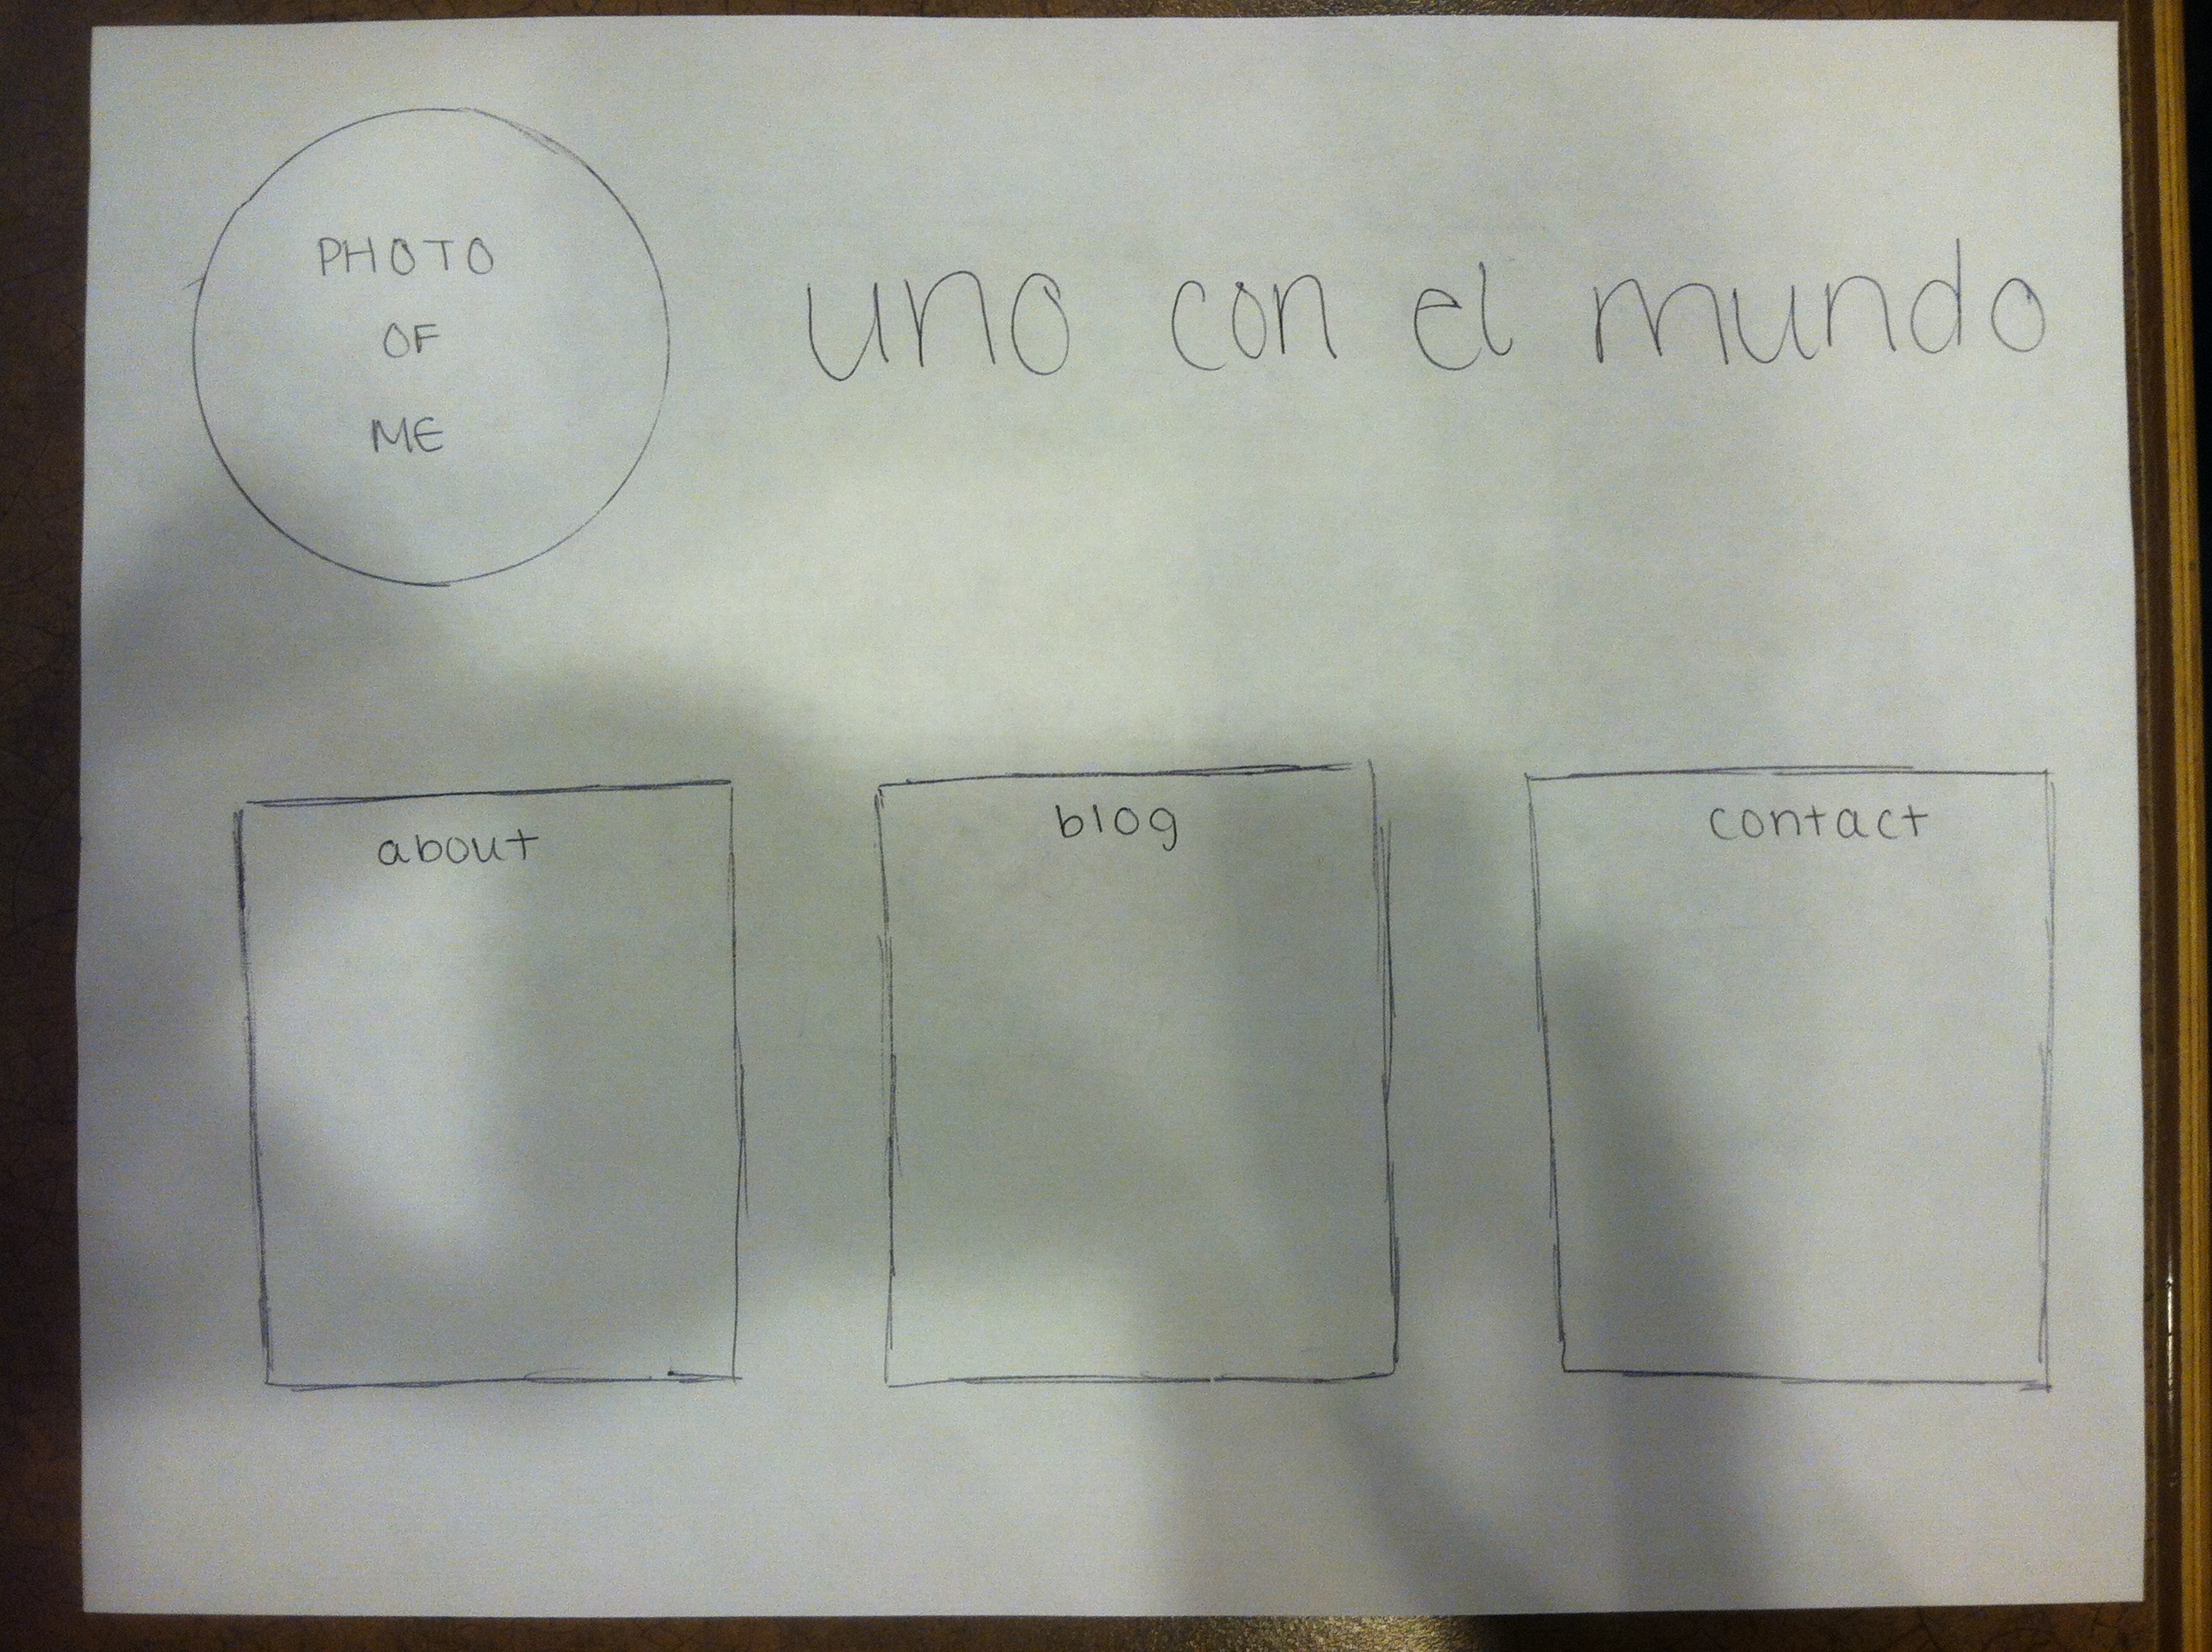 PHOTO
OF
ME
uno con el mundo
about
blog
contact